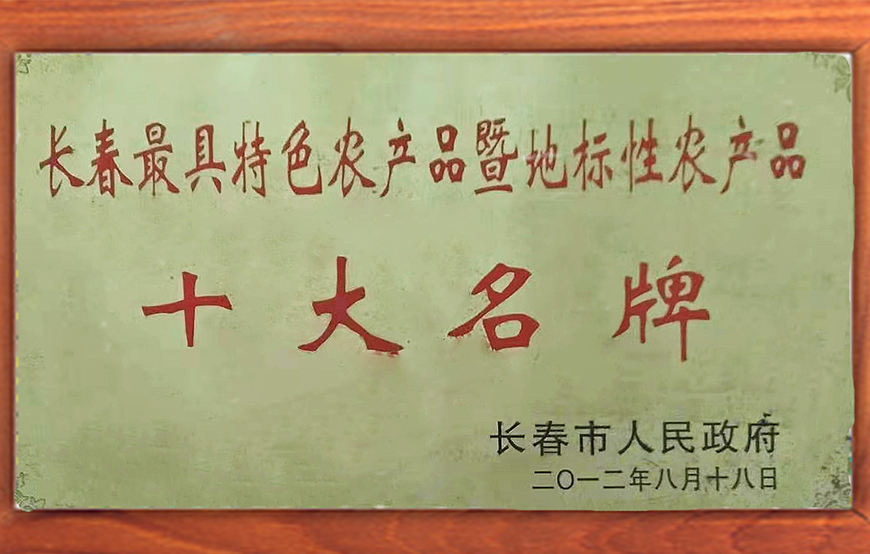 长春最具特色农产品暨地标性农产品
十大名牌
长春市人民政府
二〇一二年八月十八日